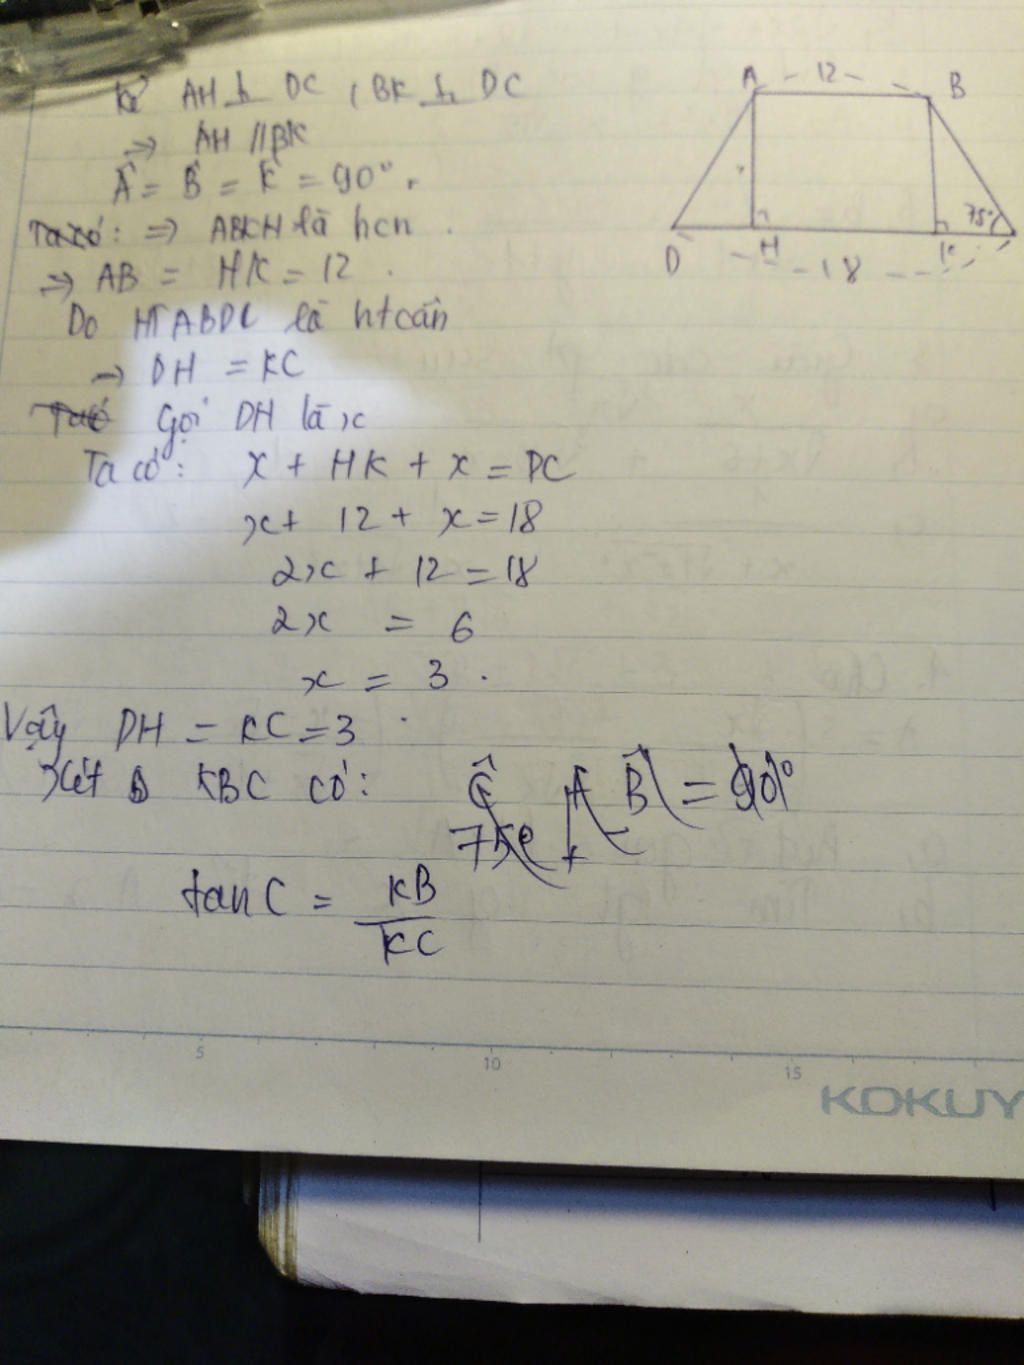 Kẻ AH ⊥ DC, BK ⊥ DC
=> AH // BK
Â = B̂ = K̂ = 90°.
Ta có: => ABKH là hcn.
=> AB = HK = 12.
Do HTABDC là htcân
-> DH = KC
Gọi DH là x
Ta có: x + HK + x = DC
x + 12 + x = 18
2x + 12 = 18
2x = 6
x = 3.
Vậy DH = KC = 3.
Xét Δ KBC có: Ĉ B̂ = 90°
75°
tan C = KB
KC
A - 12 - B
75°
D H K
- 18 -
5 10 15
KOKUY